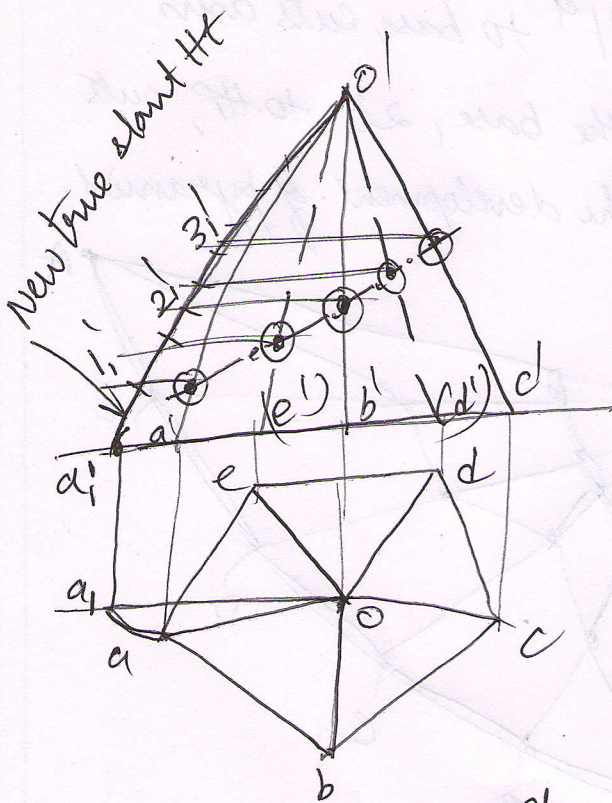 o'
New true slant Ht
3'
2'
1'
a' (e') b' (d') c'
a₁'
e d
a₁ o
a c
b